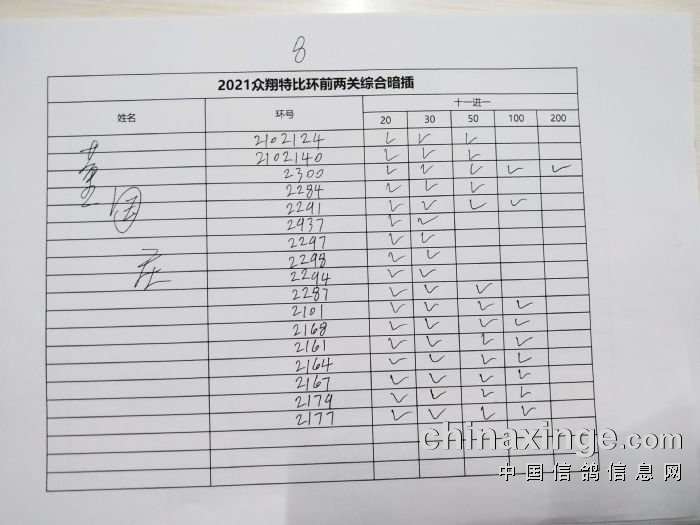 8
2021众翔特比环前两关综合暗插
姓名 环号 十一进一
20 30 50 100 200
2102124 ✓ ✓ ✓
2102140 ✓ ✓ ✓
2300 ✓ ✓ ✓ ✓ ✓
2284 ✓ ✓ ✓
2291 ✓ ✓ ✓ ✓
2937 ✓ ✓
2297 ✓ ✓
2298 ✓ ✓
2294 ✓ ✓
2287 ✓ ✓ ✓
2101 ✓ ✓ ✓ ✓
2168 ✓ ✓ ✓ ✓
2161 ✓ ✓ ✓ ✓
2164 ✓ ✓ ✓ ✓
2167 ✓ ✓ ✓ ✓
2179 ✓ ✓ ✓ ✓
2177 ✓ ✓ ✓ ✓
chinaxinge.com
中国信鸽信息网